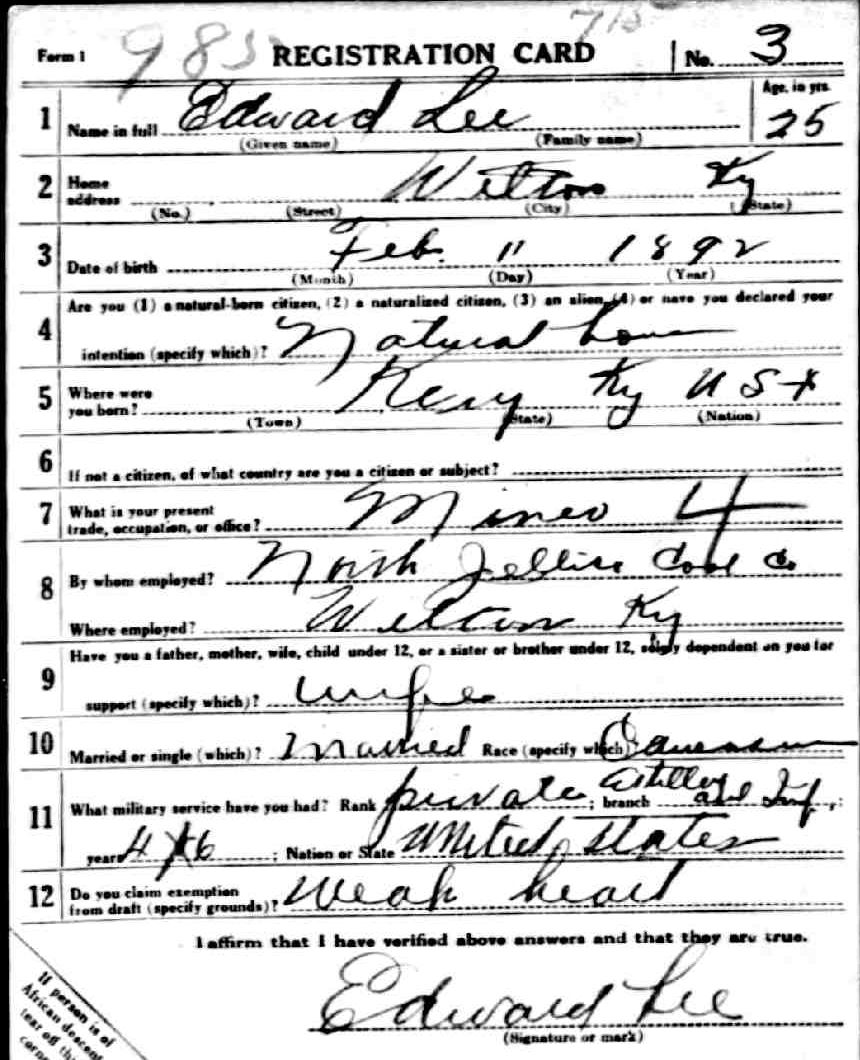 Form 1 983 REGISTRATION CARD 715 No. 3
1 Name in full Edward Lee Age, in yrs. 25
(Given name) (Family name)
2 Home address Wilton Ky
(No.) (Street) (City) (State)
3 Date of birth Feb. 11 1892
(Month) (Day) (Year)
4 Are you (1) a natural-born citizen, (2) a naturalized citizen, (3) an alien, (4) or have you declared your
intention (specify which)? Natural born
5 Where were you born? Ky U S A
(Town) (State) (Nation)
6 If not a citizen, of what country are you a citizen or subject?
7 What is your present trade, occupation, or office? Miner 4
8 By whom employed? North Jellico Coal Co.
Where employed? Wilton Ky
9 Have you a father, mother, wife, child under 12, or a sister or brother under 12, solely dependent on you for
support (specify which)? Wife
10 Married or single (which)? Married Race (specify which)? Caucasian
11 What military service have you had? Rank private ; branch Artillery and Inf. ;
years 4 ; Nation or State United States
12 Do you claim exemption from draft (specify grounds)? Weak heart
I affirm that I have verified above answers and that they are true.
Edward Lee
(Signature or mark)
If person is of
African descent
tear off this
corner